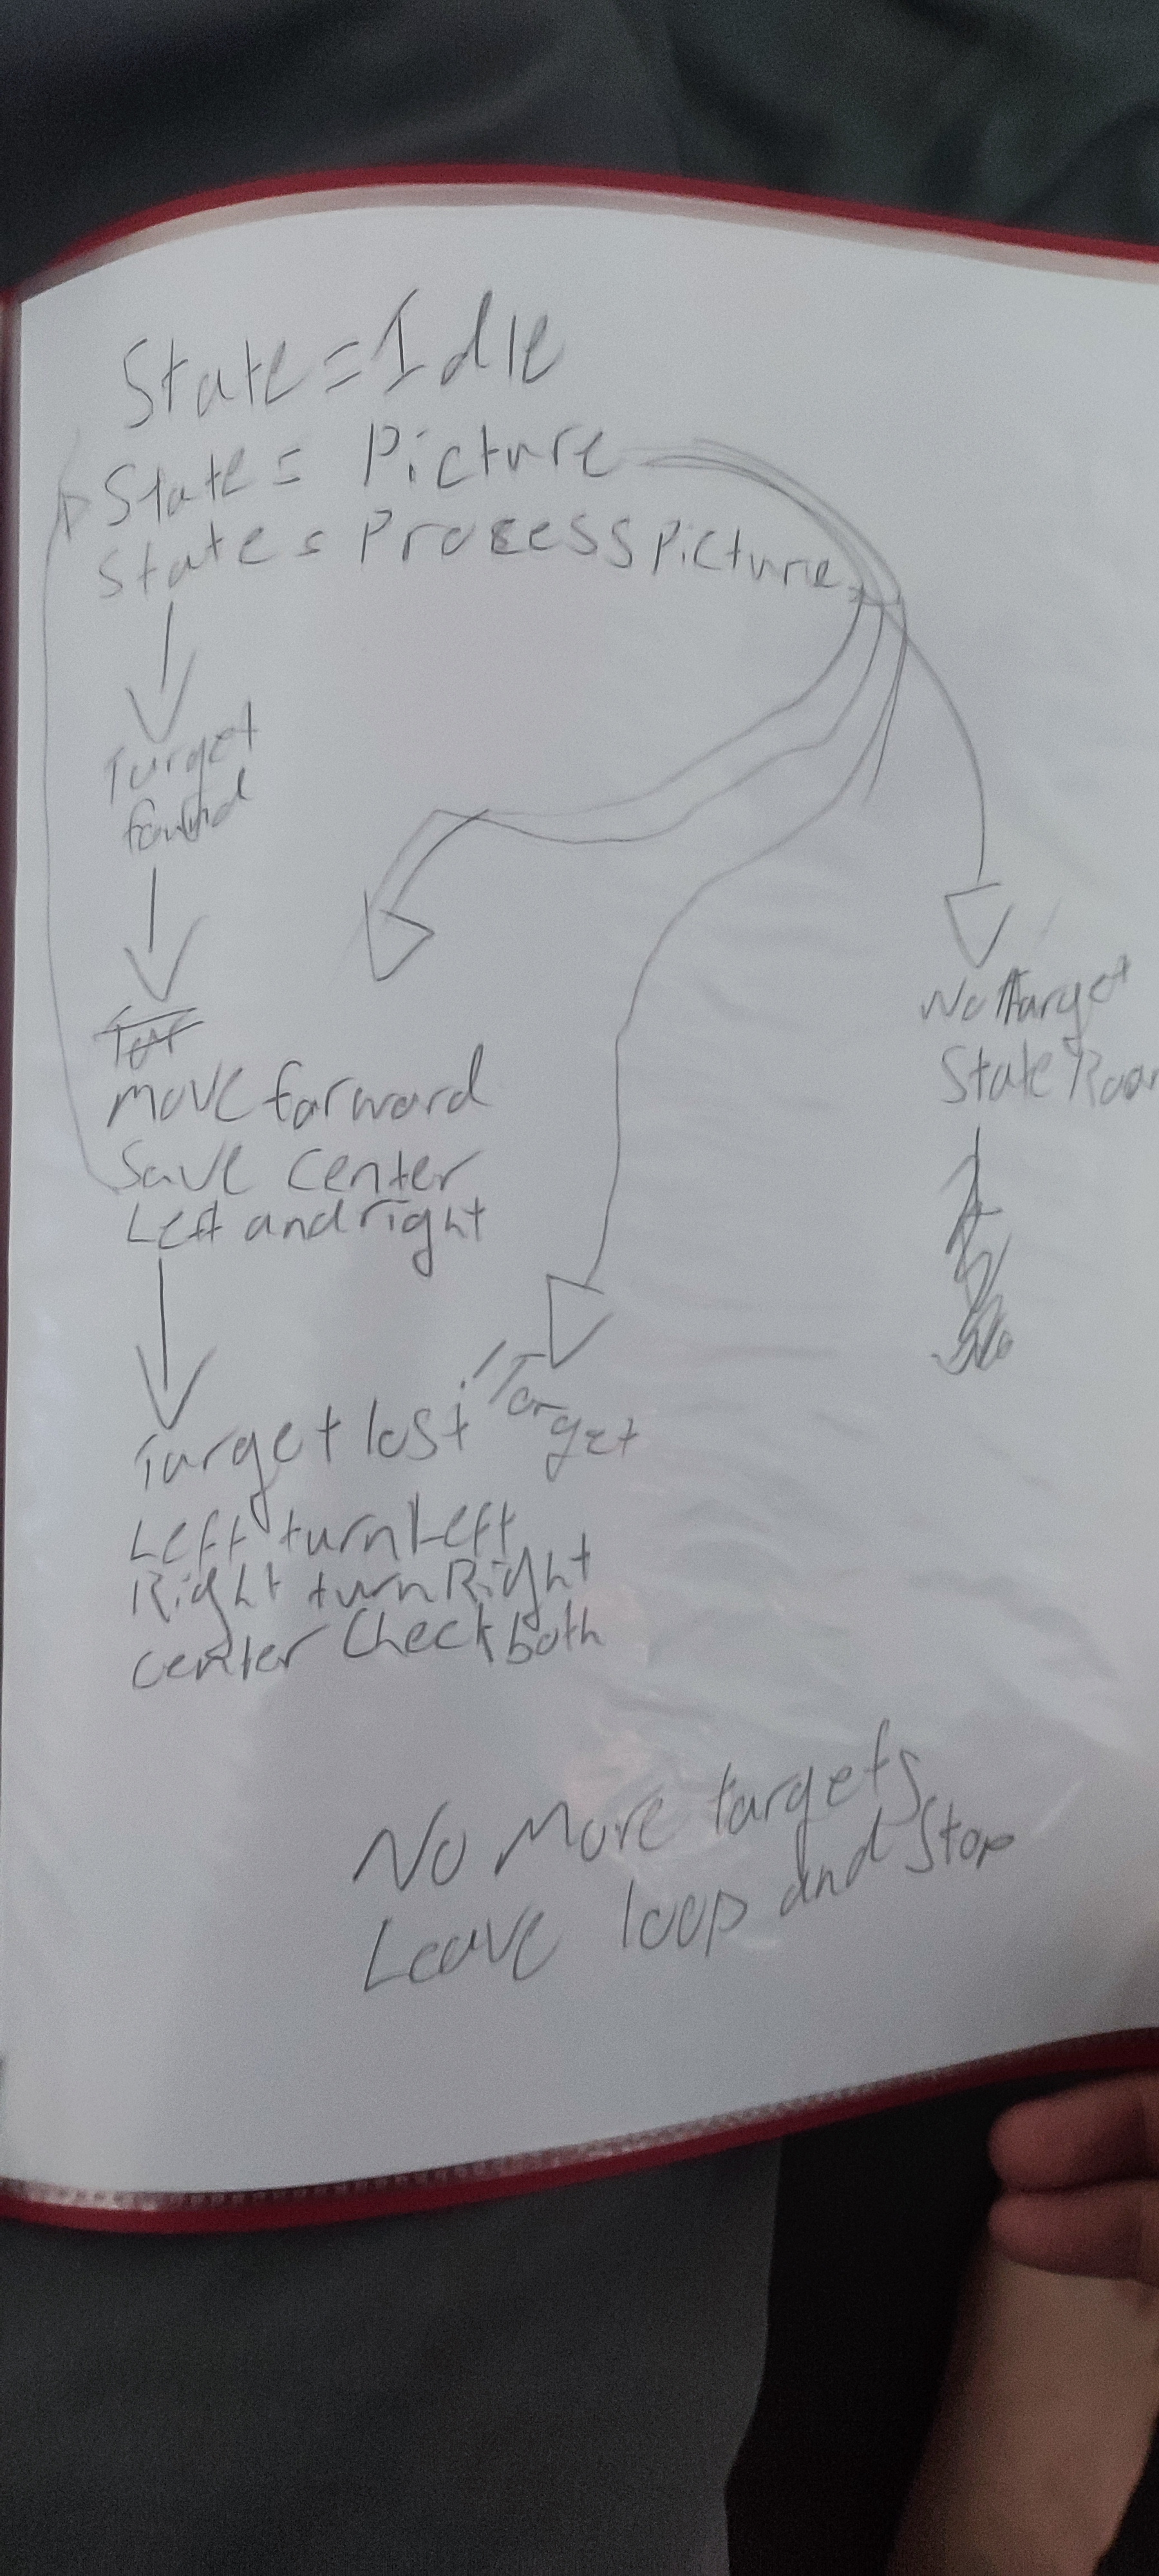 State = Idle
State = Picture
State = Process Picture
Target
found
move forward
Save center
Left and right
Target lost // Target
Left turn Left
Right turn Right
center Check both
No target
State
No More targets
Leave loop and Stop